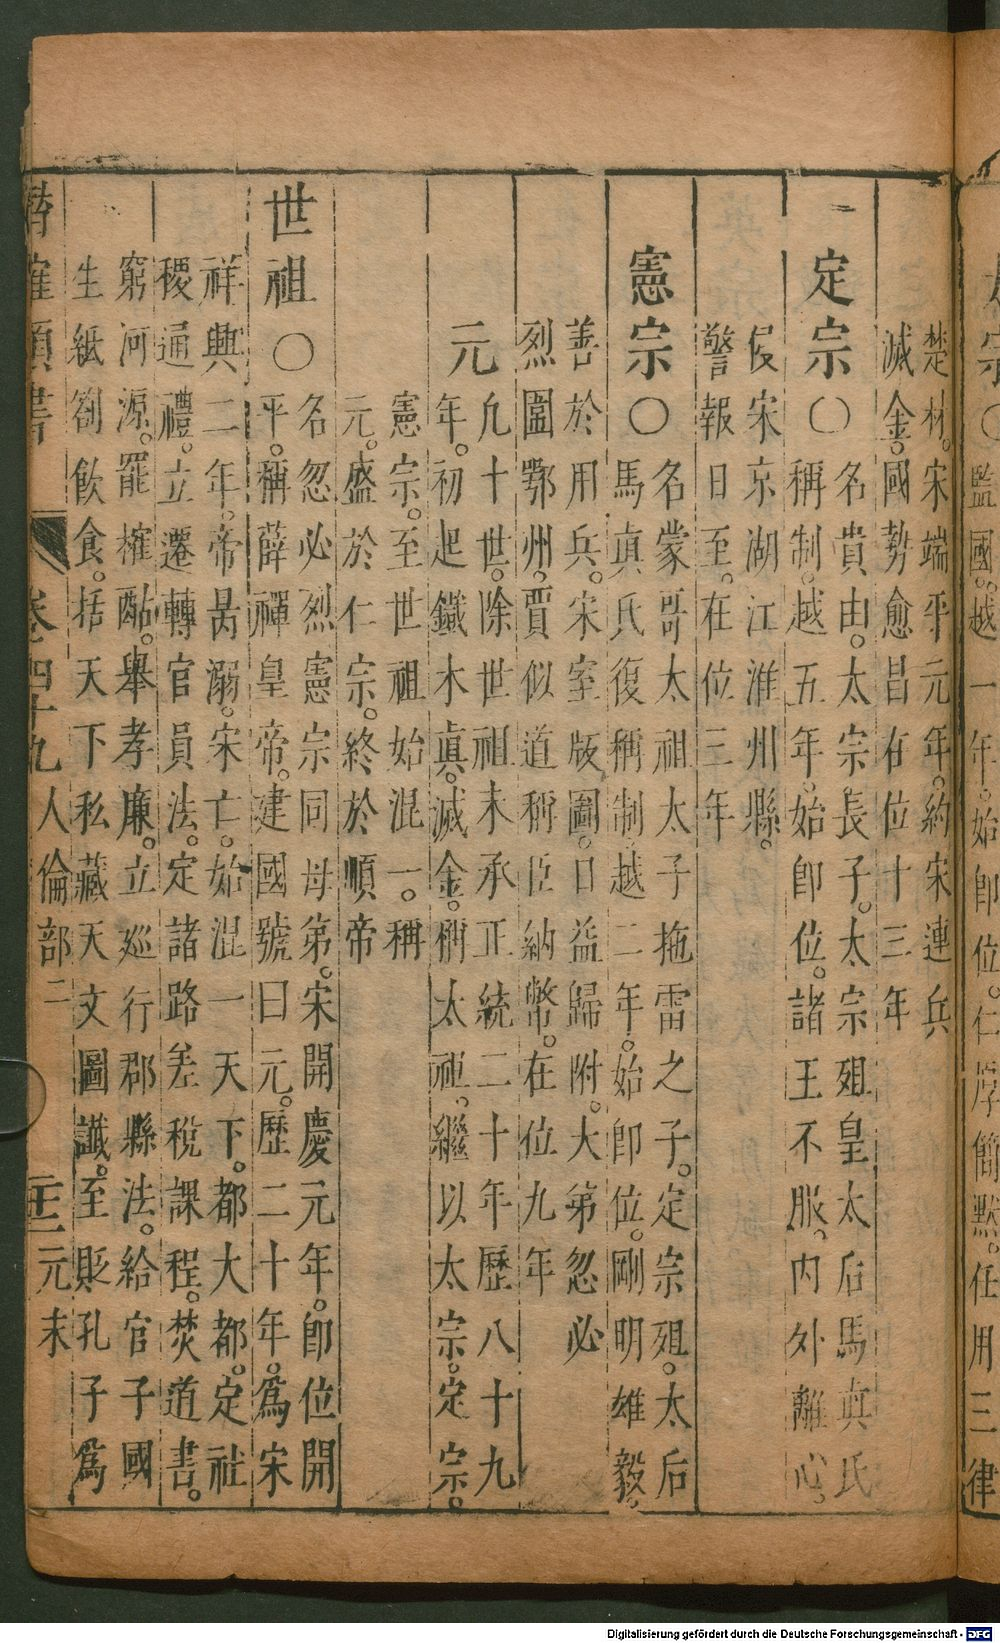 楚材。宋端平元年。約宋連兵
滅金。國勢愈昌在位十三年
定宗〇
名貴由。太宗長子。太宗殂皇太后馬真氏
稱制。越五年。始卽位。諸王不服。內外離心。
侵宋京湖江淮州縣。
警報日至。在位三年
憲宗〇
名蒙哥太祖太子拖雷之子。定宗殂。太后
馬真氏復稱制。越二年。始卽位。剛明雄毅。
善於用兵。宋室版圖。日益歸附。大第忽必
烈圍鄂州。賈似道稱臣納幣。在位九年
元
凢十世。除世祖未承正統二十年歷八十九
年。初起鐵木眞。滅金。稱太祖。繼以太宗。定宗。
憲宗。至世祖始混一。稱
元。盛於仁宗。終於順帝
世祖〇
名忽必烈憲宗同母第。宋開慶元年。卽位開
平。稱薛禪皇帝。建國號曰元。歷二十年。爲宋
祥興二年。帝昺溺。宋亡。始混一天下。都大都。定社
稷通禮。立遷轉官員法。定諸路差稅課程。焚道書。
窮河源。罷榷酤。舉孝廉。立巡行郡縣法。給官子國
生紙劄飲食。括天下私藏天文圖讖。至貶孔子爲
潛確類書
卷四十九 人倫部二 二十二 元末
監國。越一年。始卽位。仁厚簡默。任用三律
Digitalisierung gefördert durch die Deutsche Forschungsgemeinschaft - DFG